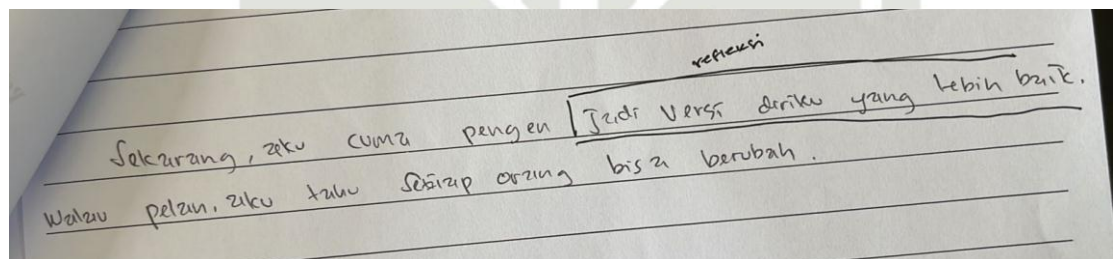 refleksi
Sekarang, aku cuma pengen Jadi versi diriku yang lebih baik.
Walau pelan, aku tahu setiap orang bisa berubah.